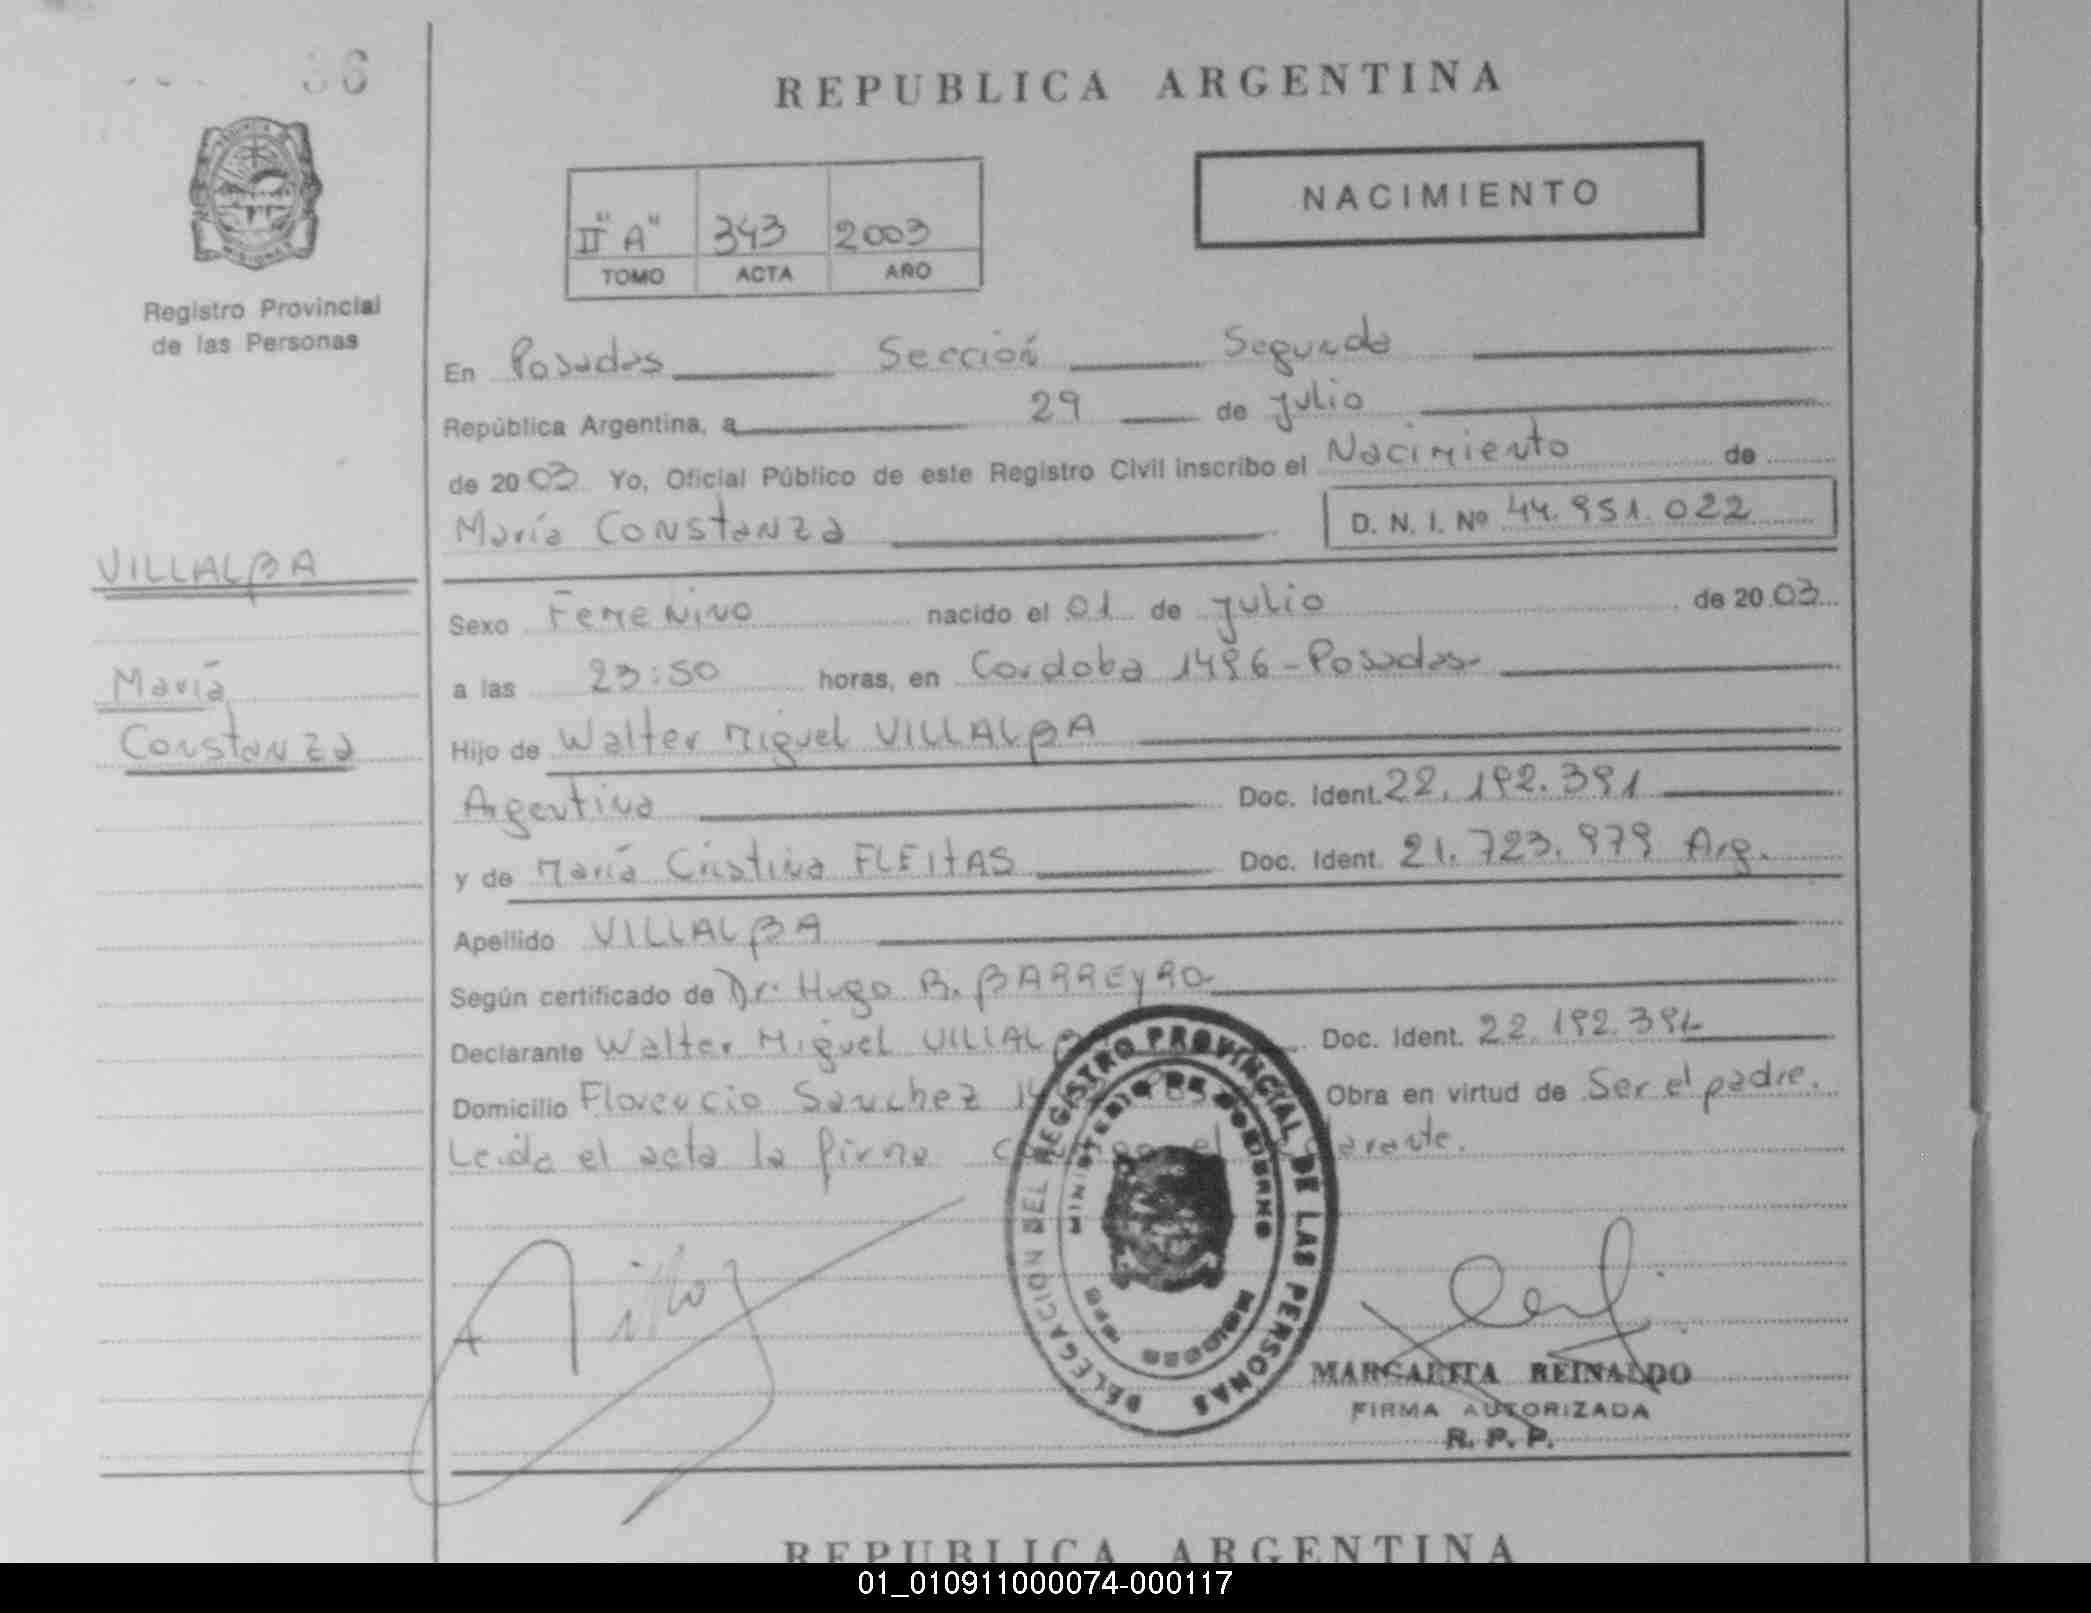 36
REPUBLICA ARGENTINA
NACIMIENTO
II "A" 343 2003
TOMO ACTA AÑO
Registro Provincial
de las Personas
En Posadas Sección Segunda
República Argentina, a 29 de Julio
de 2003 Yo, Oficial Público de este Registro Civil inscribo el Nacimiento de
María Constanza D. N. I. Nº 44.951.022
VILLALBA
María
Constanza
Sexo Femenino nacido el 01 de Julio de 2003
a las 23:50 horas, en Cordoba 1496 - Posadas
Hijo de Walter Miguel VILLALBA
Argentina Doc. Ident. 22.192.391
y de María Cristina FLEITAS Doc. Ident. 21.723.979 Arg.
Apellido VILLALBA
Según certificado de Dr. Hugo B. BARREYRO
Declarante Walter Miguel VILLALB Doc. Ident. 22.192.391
Domicilio Florencio Sanchez Obra en virtud de Ser el padre.
Leida el acta la firma el
DELEGACION DEL REGISTRO PROVINCIAL DE LAS PERSONAS
MINISTERIO DE GOBIERNO
MARGARITA REINALDO
FIRMA AUTORIZADA
R. P. P.
REPUBLICA ARGENTINA
01_010911000074-000117